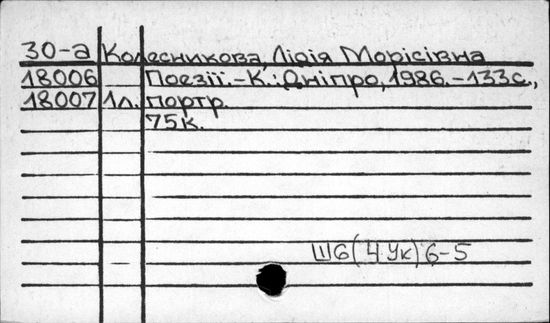 30-а Колесникова, Лідія Морісівна
18006 Поезії.-К.: Дніпро, 1986.-133с.,
18007 1л. портр.
75к.
Ш6(4Ук)6-5